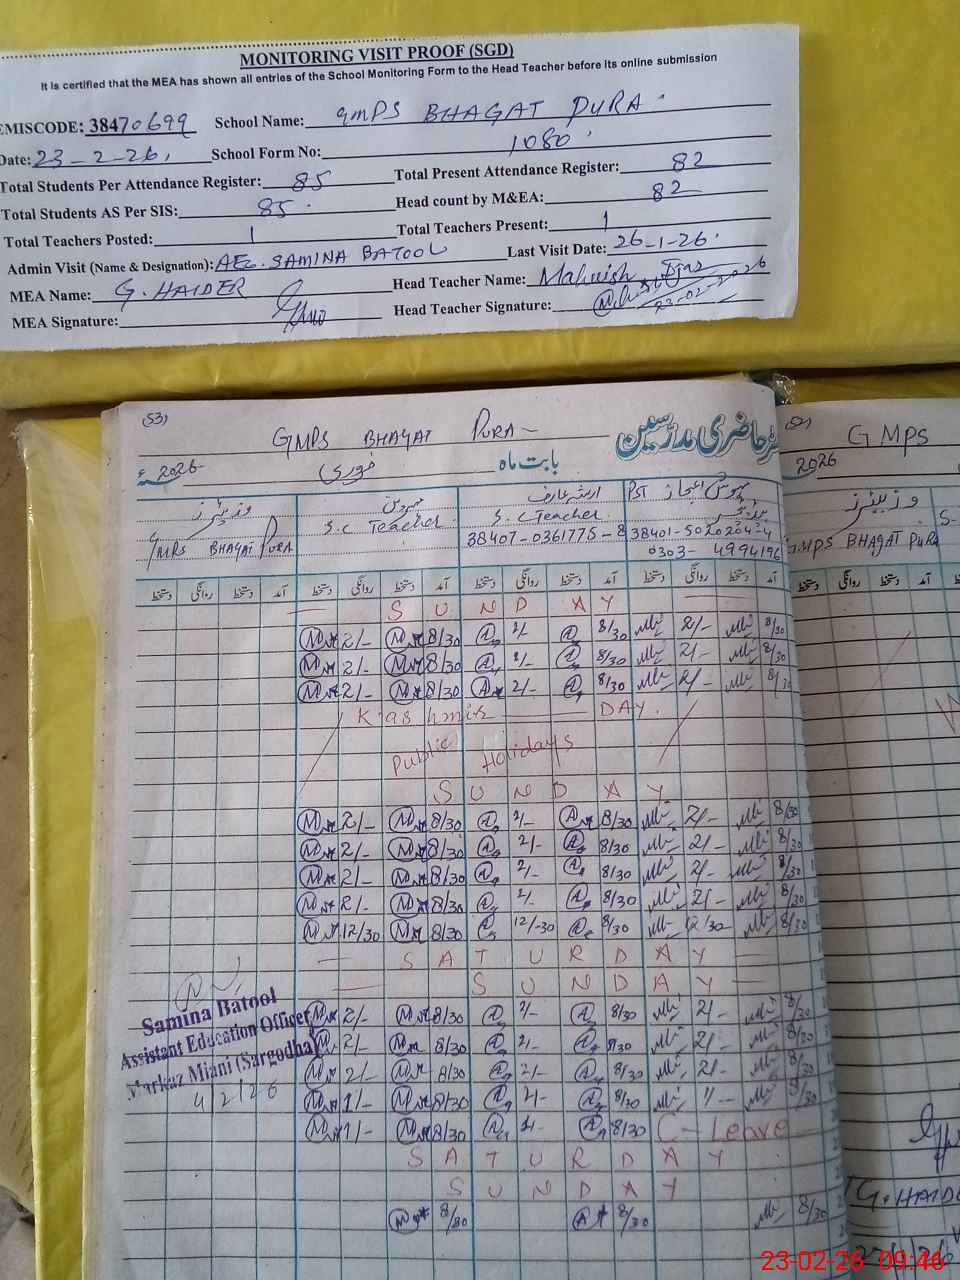 MONITORING VISIT PROOF (SGD)
It is certified that the MEA has shown all entries of the School Monitoring Form to the Head Teacher before its online submission
EMISCODE: 38470699 School Name: GMPS BHAGAT PURA
Date: 23-2-26, School Form No: 1080
Total Students Per Attendance Register: 85 Total Present Attendance Register: 82
Total Students AS Per SIS: 85 Head count by M&EA: 82
Total Teachers Posted: 1 Total Teachers Present: 1
Admin Visit (Name & Designation): AEO. SAMINA BATOOL Last Visit Date: 26-1-26
MEA Name: G. HAIDER Head Teacher Name: Mahwish Ijaz
MEA Signature: Head Teacher Signature: 23-02-2026
(53) GMPS BHAGAT PURA حاضری مدرسین
بابت ماہ فروری 2026ء
وزیٹرز مہروین ارشہ عارف مہوش اعجاز PST
GMPS BHAGAT PURA S.C Teacher S.C Teacher
38407-0361775-8 38401-5020204-4
0303-4994196
دستخط روانگی دستخط آمد دستخط روانگی دستخط آمد دستخط روانگی دستخط آمد دستخط روانگی دستخط آمد
SUNDAY
2/- 8/30 2/- 8/30 2/- 8/30
2/- 8/30 2/- 8/30 2/- 8/30
2/- 8/30 2/- 8/30 2/- 8/30
Kashmir DAY.
Public Holidays
SUNDAY
2/- 8/30 2/- 8/30 2/- 8/30
2/- 8/30 2/- 8/30 2/- 8/30
2/- 8/30 2/- 8/30 2/- 8/30
2/- 8/30 2/- 8/30 2/- 8/30
12/30 8/30 12/30 8/30 12/30 8/30
SATURDAY
SUNDAY
2/- 8/30 2/- 8/30 2/- 8/30
2/- 8/30 2/- 8/30 2/- 8/30
2/- 8/30 2/- 8/30 2/- 8/30
1/- 8/30 2/- 8/30 1/- 8/30
1/- 8/30 2/- 8/30 C-Leave
SATURDAY
SUNDAY
8/30 8/30 8/30
Samina Batool
Assistant Education Officer
Markaz Miani (Sargodha)
4/2/26
GMPS
2026
وزیٹرز
GMPS BHAGAT PURA
دستخط روانگی دستخط آمد
G. HAIDER
23-02-26 09:46